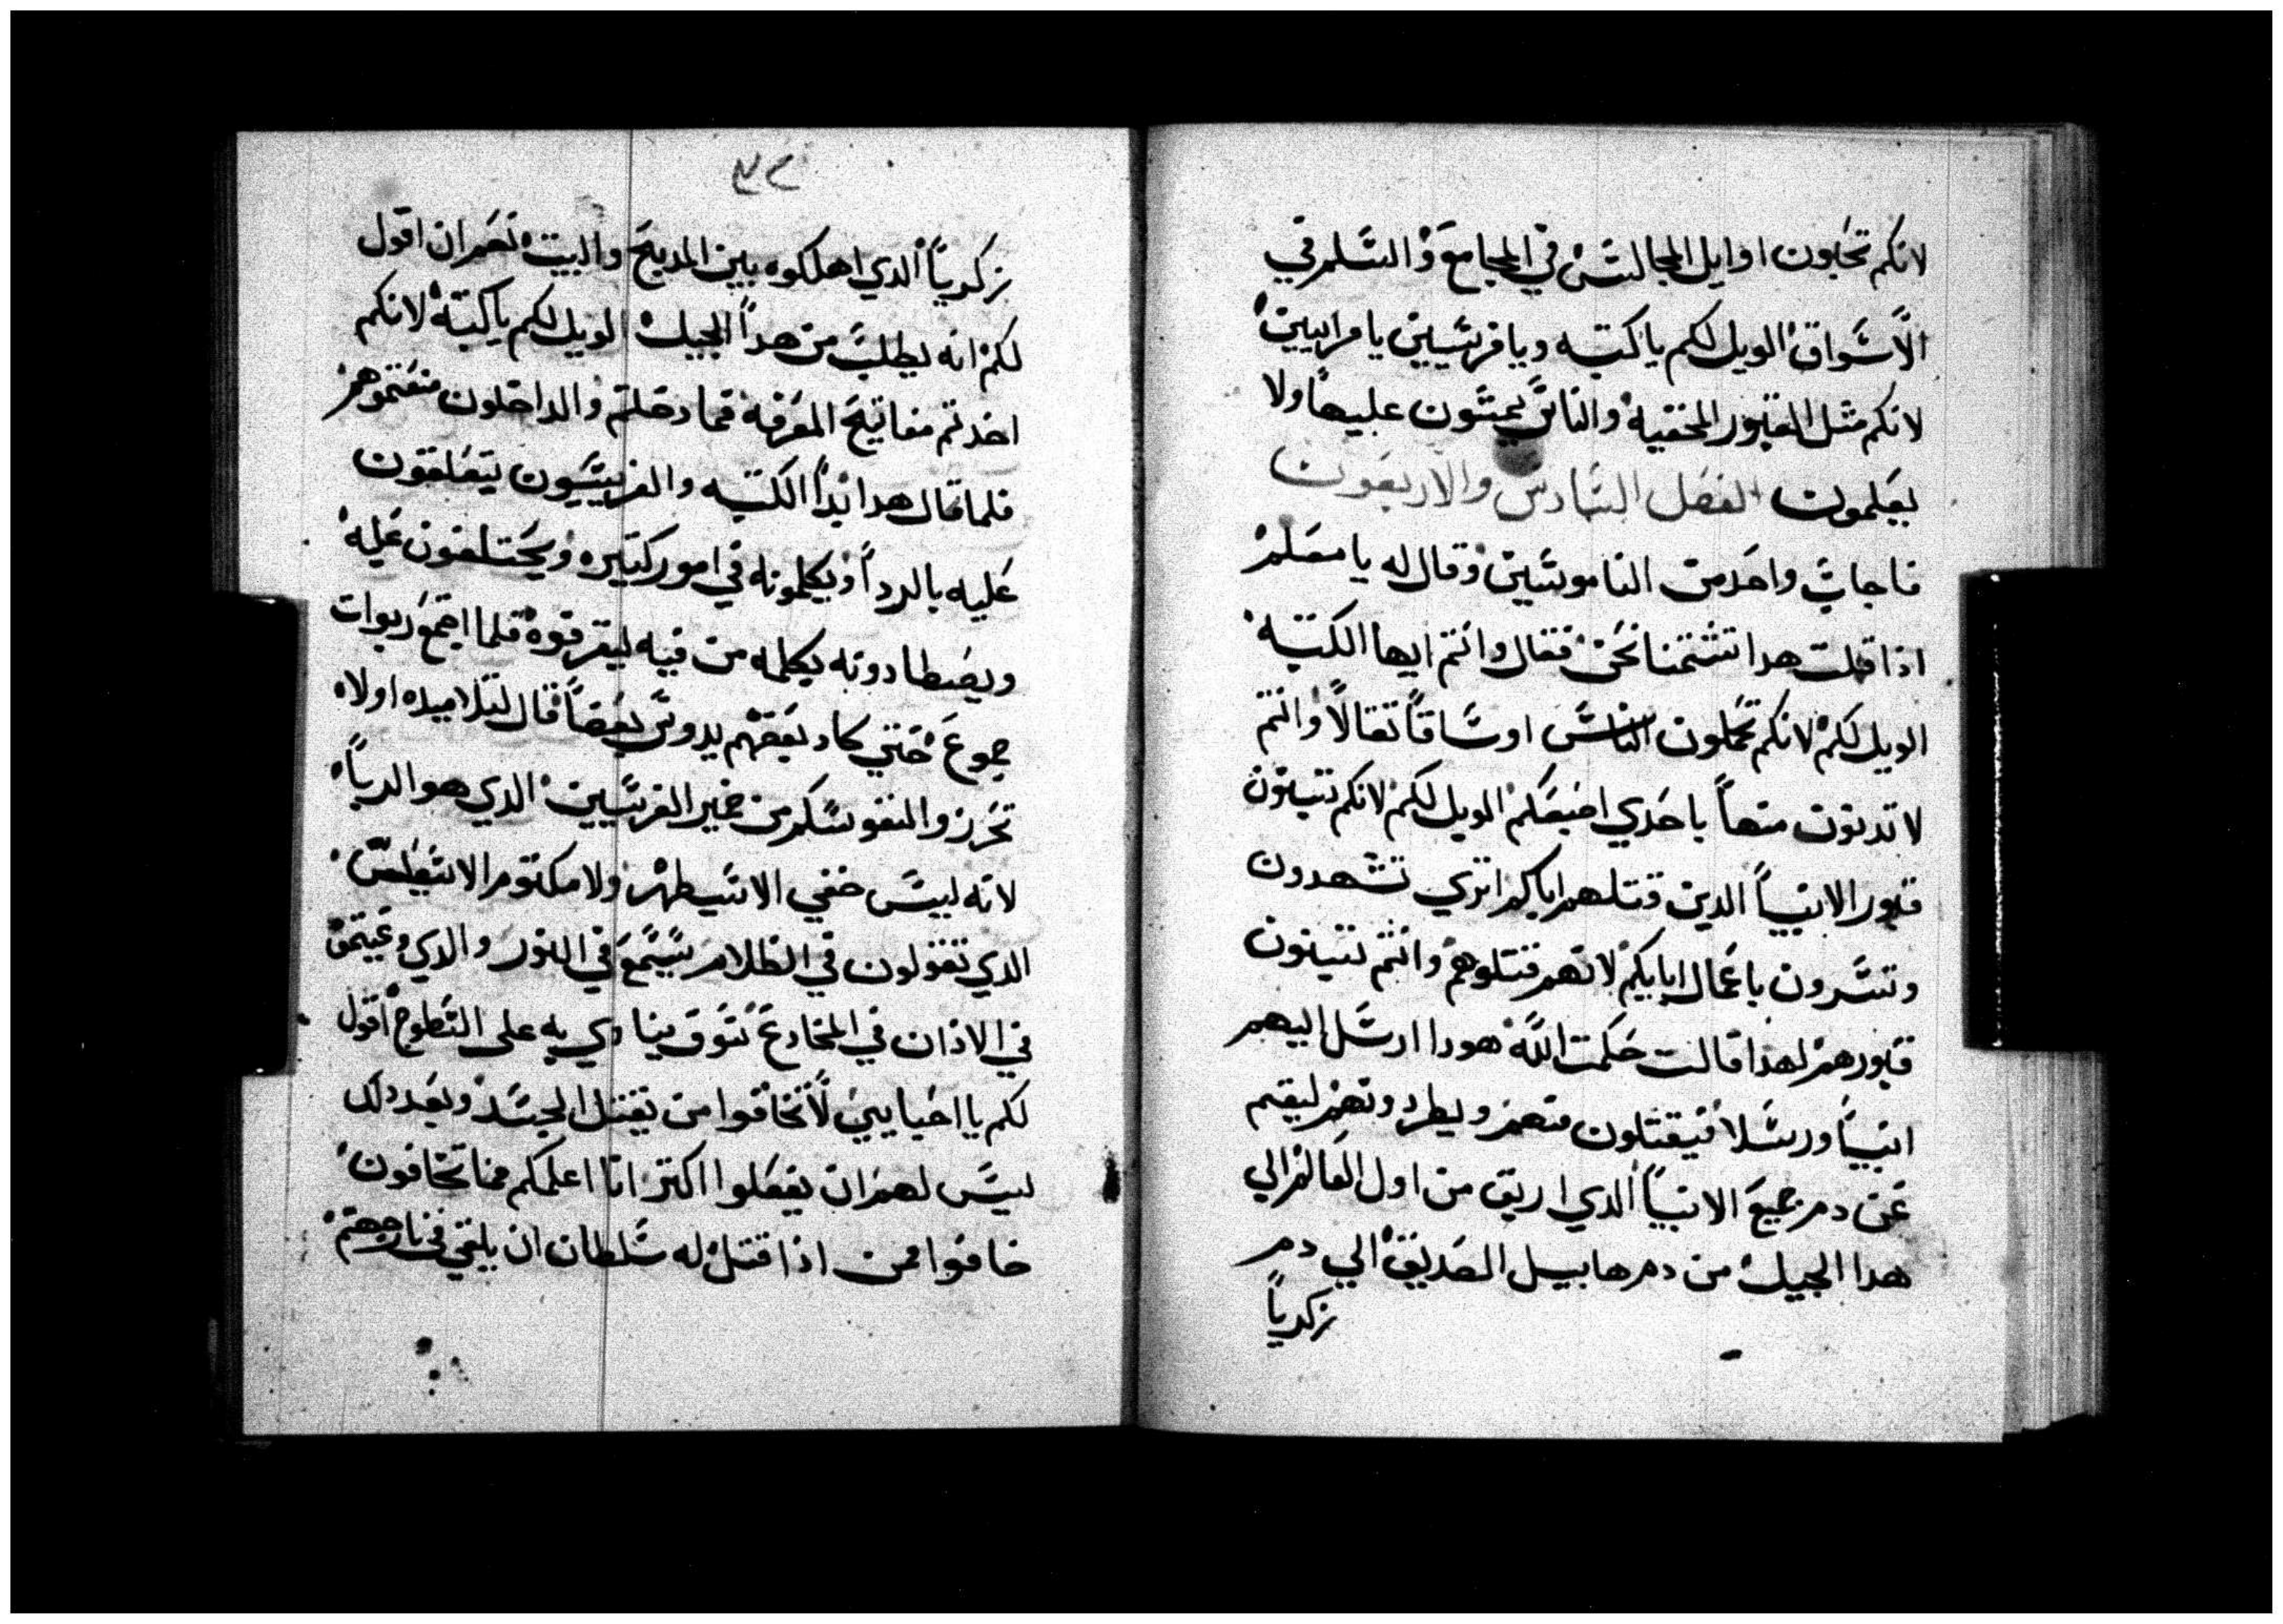 لانكم تحبون اوايل المجالس في المجامع والسلم في
الاسواق الويل لكم يا كتبه ويا فريسيين يا مراييين
لانكم مثل القبور المخفيه والناس يمشون عليها ولا
يعلمون الفصل السادس والاربعون
فاجاب واحد من الناموسيين وقال له يا معلم
اذا قلت هدا تشتمنا نحن فقال وانتم ايها الكتبه
الويل لكم لانكم تحملون الناس اوساقا تقالا وانتم
لا تدنون منها باحدي اصبعكم الويل لكم لانكم تبنون
قبور الانبيا الدين قتلهم اباكم اتري تشهدون
وتسرون باعمال ابايكم لانهم قتلوهم وانتم تبنون
قبورهم لهدا قالت حكمت الله هودا ارسل اليهم
انبيا ورسلا فيقتلون منهم ويطردونهم لينقم
عن دم جميع الانبيا الدي اريق من اول العالم الي
هدا الجيل من دم هابيل الصديق الي دم
زكريا
٧٢
زكريا الدي اهلكوه بين المدبح والبيت نعم ان اقول
لكم انه يطلب من هدا الجيل الويل لكم يا كتبة لانكم
اخدتم مفاتيح المعرفه فما دخلتم والداخلون منعتموهم
فلما قال هدا بدا الكتبه والفريسيون يتعلقون
عليه بالردا ويكلمونه في امور كتيره ويحتلفون عليه
ويصطادونه بكلمه من فيه ليقرفوه فلما اجتمع ربوات
جموع حتي كاد بعضهم يدوس بعضا قال لتلاميده اولا
تحرزوا لنفوسكم من خمير الفريسيين الدي هو الريا
لانه ليس خفي الا سيظهر ولا مكتوم الا سيعلن
الدي تقولون في الظلام سيسمع في النور والدي وعيتموه
في الاذان في المخادع سوف ينادي به علي السطوح اقول
لكم يا احبايي لا تخافوا من يقتل الجسد وبعد دلك
ليس لهم ان يفعلوا اكتر انا اعلمكم مما تخافون
خافوا ممن اذا قتل له سلطان ان يلقي في نار جهنم